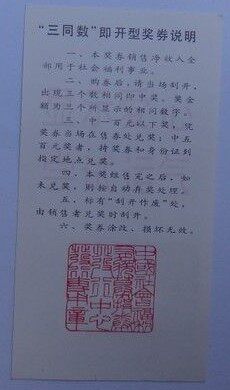 “三同数”即开型奖券说明
一、本奖券销售净收入全
部用于社会福利事业。
二、购券后,请当场刮开,
出现三个数相同即中奖。奖金
额为三个所显示的相同数字。
三、中一百元以下奖,凭
奖券当场在售券处兑奖;中五
百元奖者,持奖券和身份证到
指定地点兑奖。
四、本奖组售完之后,如
未兑奖,则按自动弃奖处理。
五、标有“刮开作废”处,
由销售者兑奖时刮开。
六、奖券涂改、损坏无效。